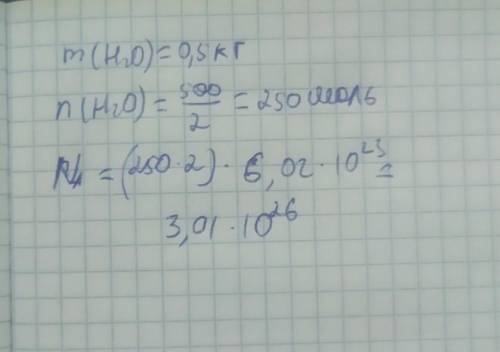 m(H₂O)=0,5кг
n(H₂O)=500/2=250моль
N=(250·2)·6,02·10²³=
3,01·10²⁶